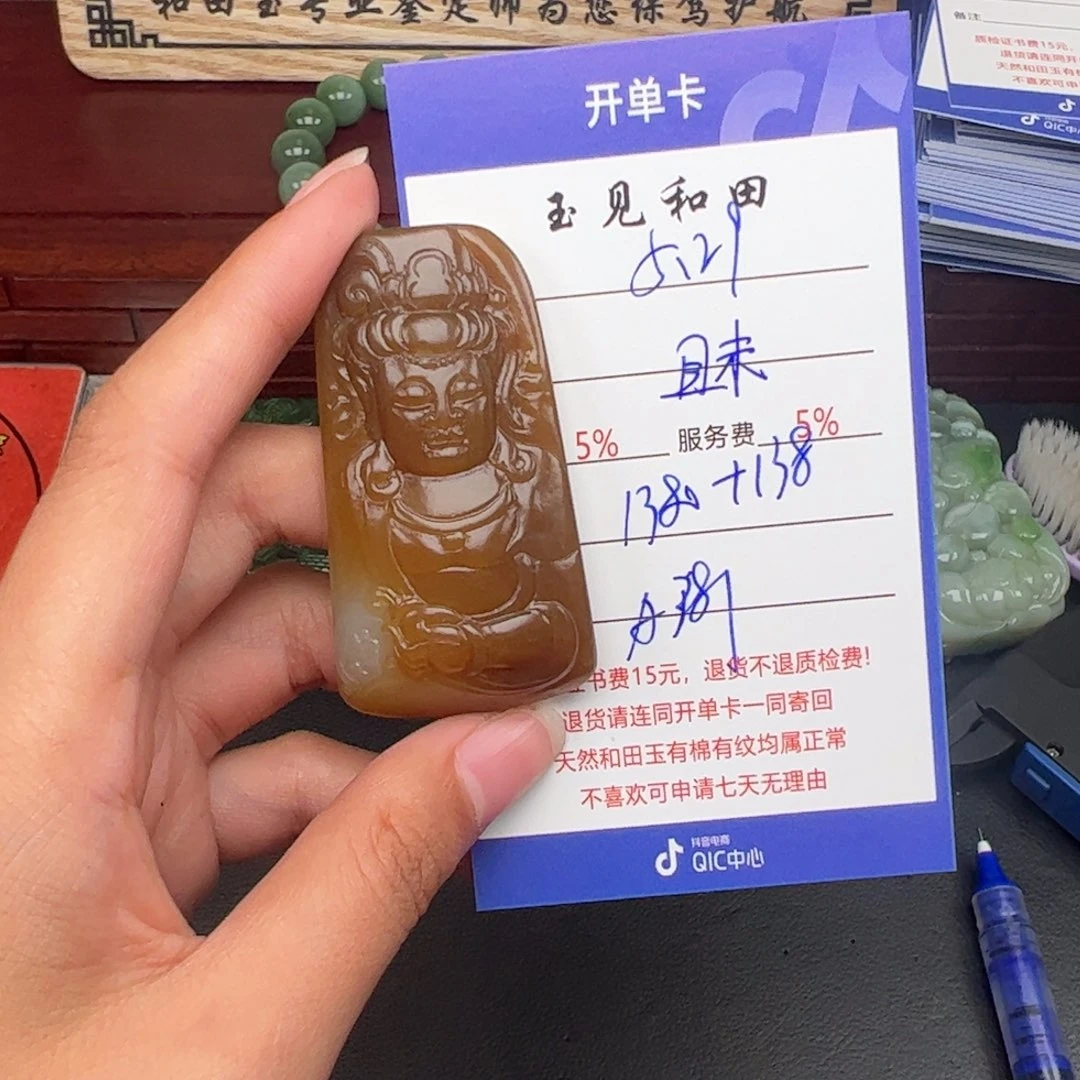 和田玉专业鉴定师为您保驾护航
开单卡
玉见和田
5.29
且末
5% 服务费 5%
1380+138
证书费15元，退货不退质检费！
退货请连同开单卡一同寄回
天然和田玉有棉有纹均属正常
不喜欢可申请七天无理由
抖音电商
QIC中心
备注
质检证书费15元，
退货请连同开
天然和田玉有
不喜欢可申
QIC中心